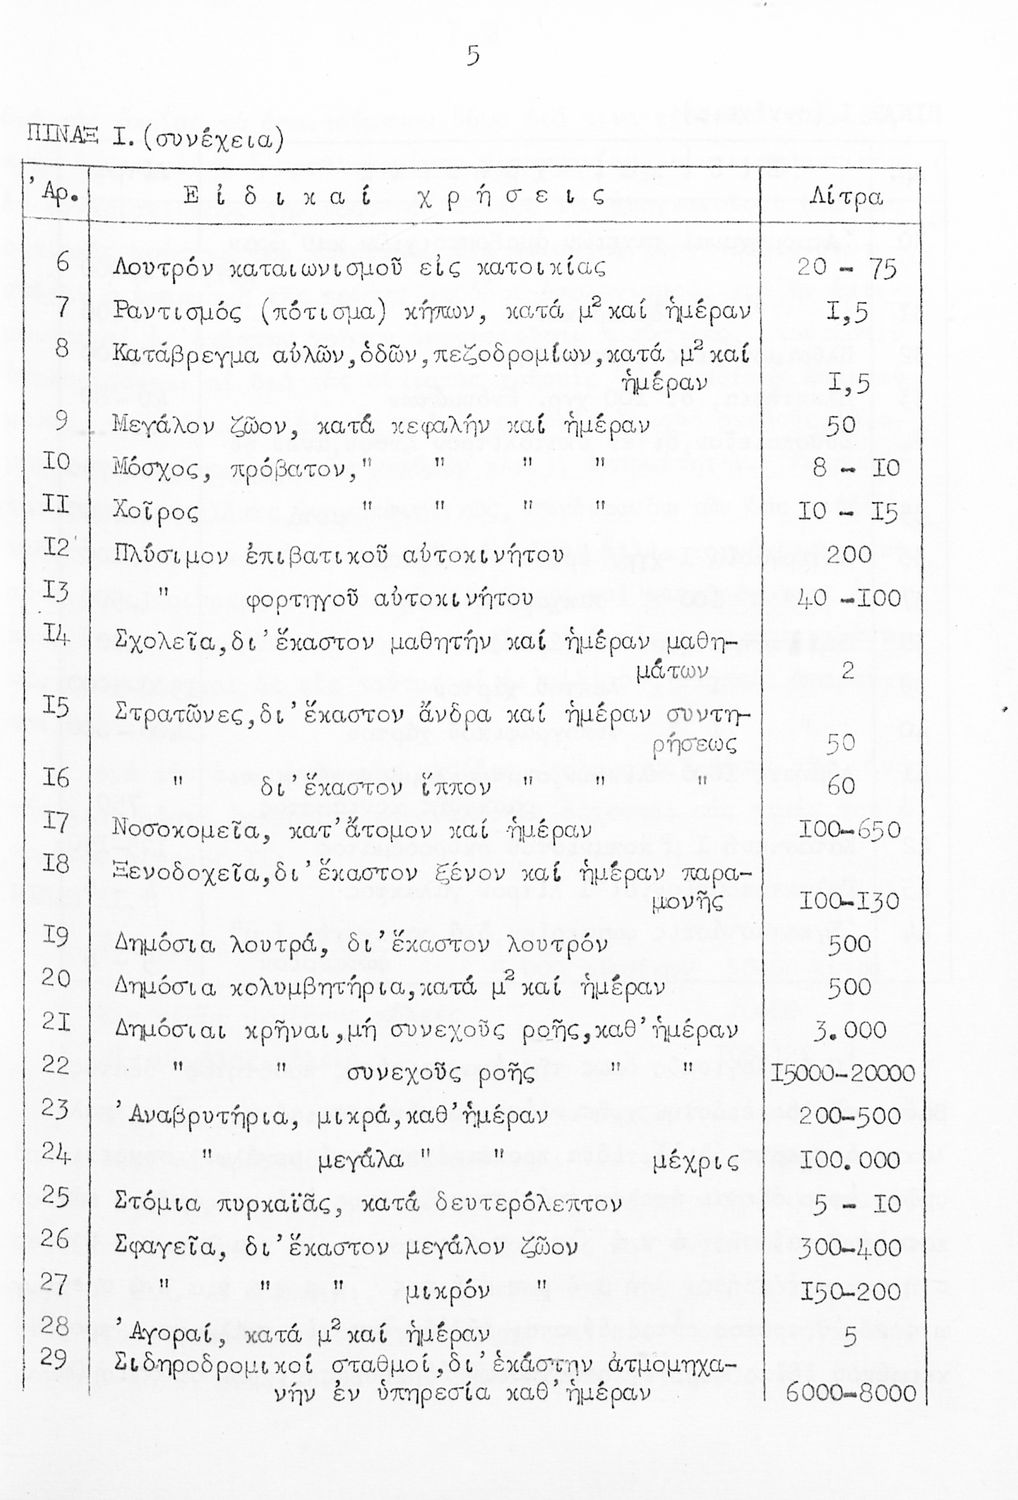 5
ΠΙΝΑΞ Ι. (συνέχεια)
'Αρ. Εἰδικαί χρήσεις Λίτρα
6 Λουτρόν καταιωνισμοῦ εἰς κατοικίας 20 - 75
7 Ραντισμός (πότισμα) κήπων, κατά μ² καί ἡμέραν 1,5
8 Κατάβρεγμα αὐλῶν,ὁδῶν,πεζοδρομίων,κατά μ² καί
ἡμέραν 1,5
9 Μεγάλον ζῶον, κατά κεφαλήν καί ἡμέραν 50
10 Μόσχος, πρόβατον," " " " 8 - 10
11 Χοῖρος " " " " 10 - 15
12 Πλύσιμον ἐπιβατικοῦ αὐτοκινήτου 200
13 " φορτηγοῦ αὐτοκινήτου 40 -100
14 Σχολεῖα,δι'ἕκαστον μαθητήν καί ἡμέραν μαθη-
μάτων 2
15 Στρατῶνες,δι'ἕκαστον ἄνδρα καί ἡμέραν συντη-
ρήσεως 50
16 " δι'ἕκαστον ἵππον " " " 60
17 Νοσοκομεῖα, κατ'ἄτομον καί ἡμέραν 100-650
18 Ξενοδοχεῖα,δι'ἕκαστον ξένον καί ἡμέραν παρα-
μονῆς 100-130
19 Δημόσια λουτρά, δι'ἕκαστον λουτρόν 500
20 Δημόσια κολυμβητήρια,κατά μ² καί ἡμέραν 500
21 Δημόσιαι κρῆναι,μή συνεχοῦς ροῆς,καθ'ἡμέραν 3.000
22 " " συνεχοῦς ροῆς " " 15000-20000
23 'Αναβρυτήρια, μικρά,καθ'ἡμέραν 200-500
24 " μεγάλα " " μέχρις 100.000
25 Στόμια πυρκαϊᾶς, κατά δευτερόλεπτον 5 - 10
26 Σφαγεῖα, δι'ἕκαστον μεγάλον ζῶον 300-400
27 " " " μικρόν " 150-200
28 'Αγοραί, κατά μ² καί ἡμέραν 5
29 Σιδηροδρομικοί σταθμοί,δι'ἑκάστην ἀτμομηχα-
νήν ἐν ὑπηρεσία καθ'ἡμέραν 6000-8000